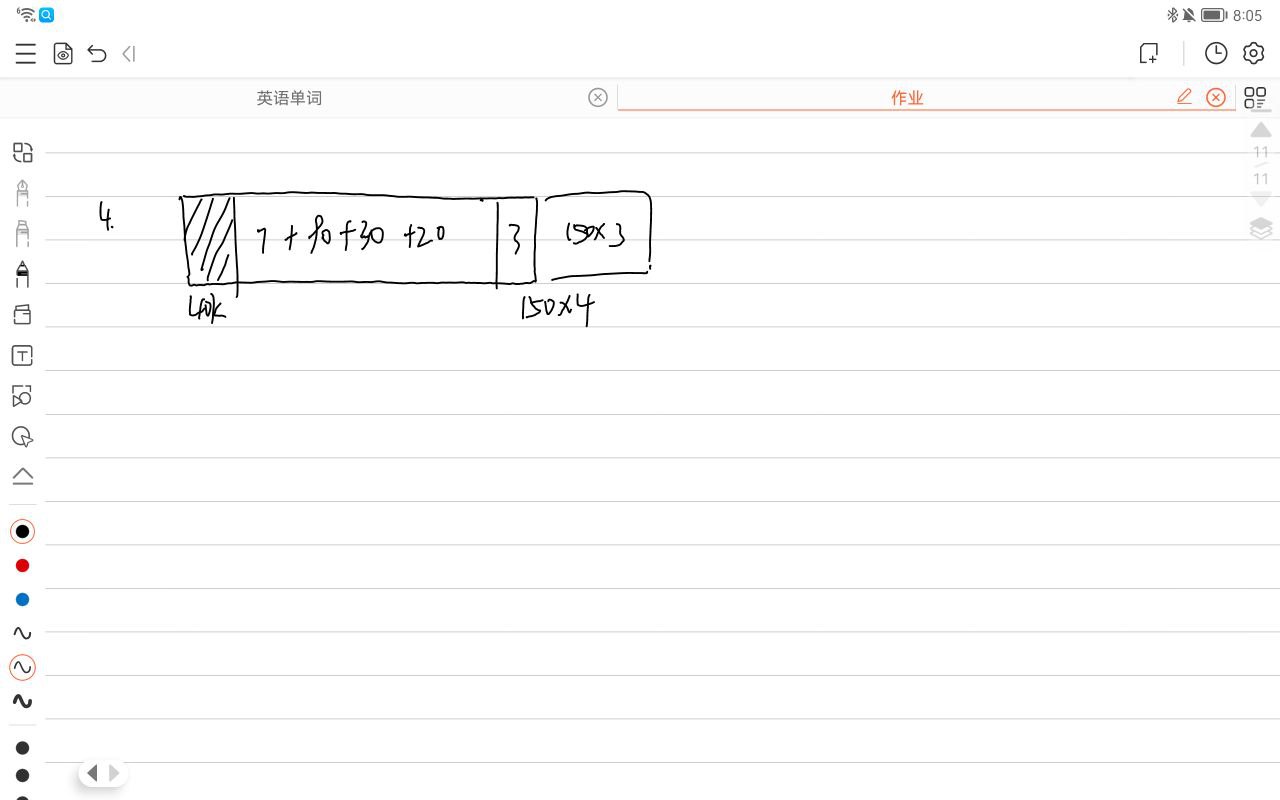 8:05
英语单词 作业
11
11
4.
7 + 90 + 30 + 20 3 150×3
40k 150×4